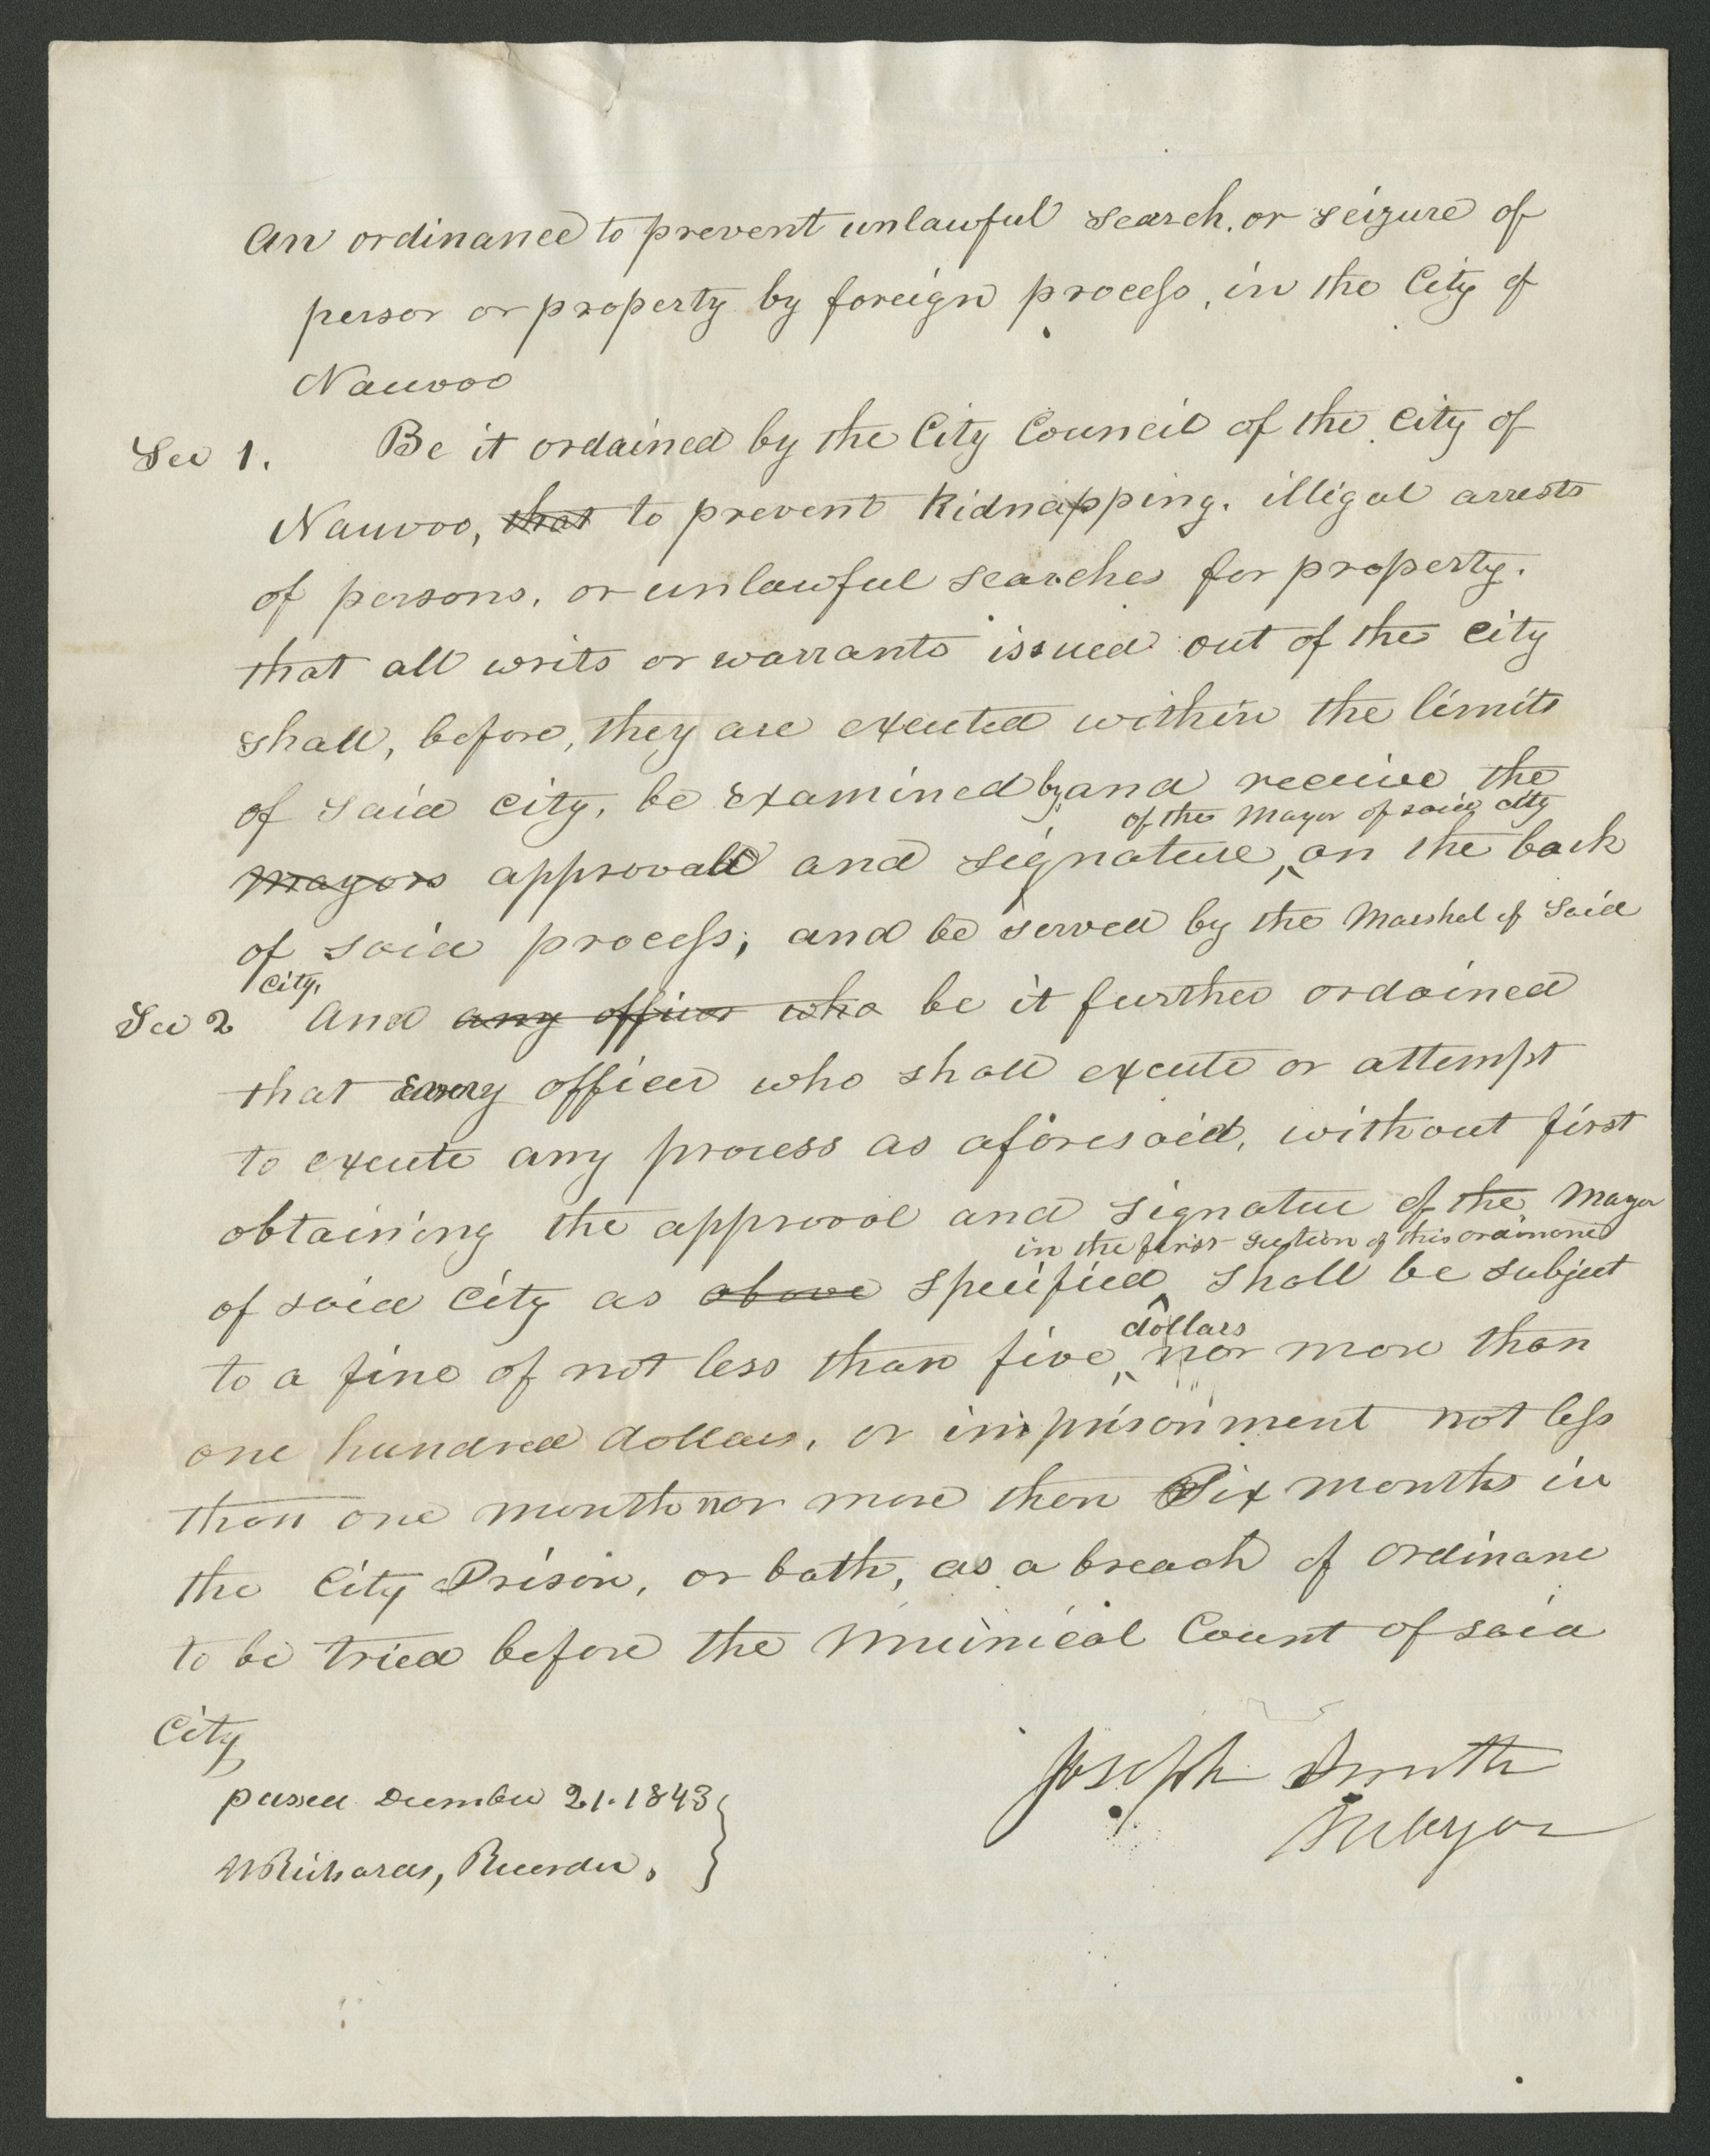 An ordinance to prevent unlawful search, or seizure of
person or property by foreign process, in the City of
Nauvoo
Sec 1. Be it ordained by the City Council of the City of
Nauvoo, that to prevent kidnapping, illegal arrests
of persons, or unlawful searches for property.
that all writs or warrants issued out of the city
shall, before, they are executed within the limits
of said city, be examined by, and receive the
of the Mayor of said city
mayors approval and signature, on the back
of said process; and be served by the Marshal of said
city,
Sec 2 And any officer who be it further ordained
that every officer who shall execute or attempt
to execute any process as aforesaid, without first
obtaining the approval and signature of the Mayor
in the first section of this ordinance
of said city as above specified shall be subject
dollars
to a fine of not less than five, nor more than
one hundred dollars, or imprisonment not less
than one month nor more than Six months in
the City Prison, or both, as a breach of ordinance
to be tried before the Muinical Court of said
City
passed December 21. 1843
W Richards, Recorder.
Joseph Smith
Mayor